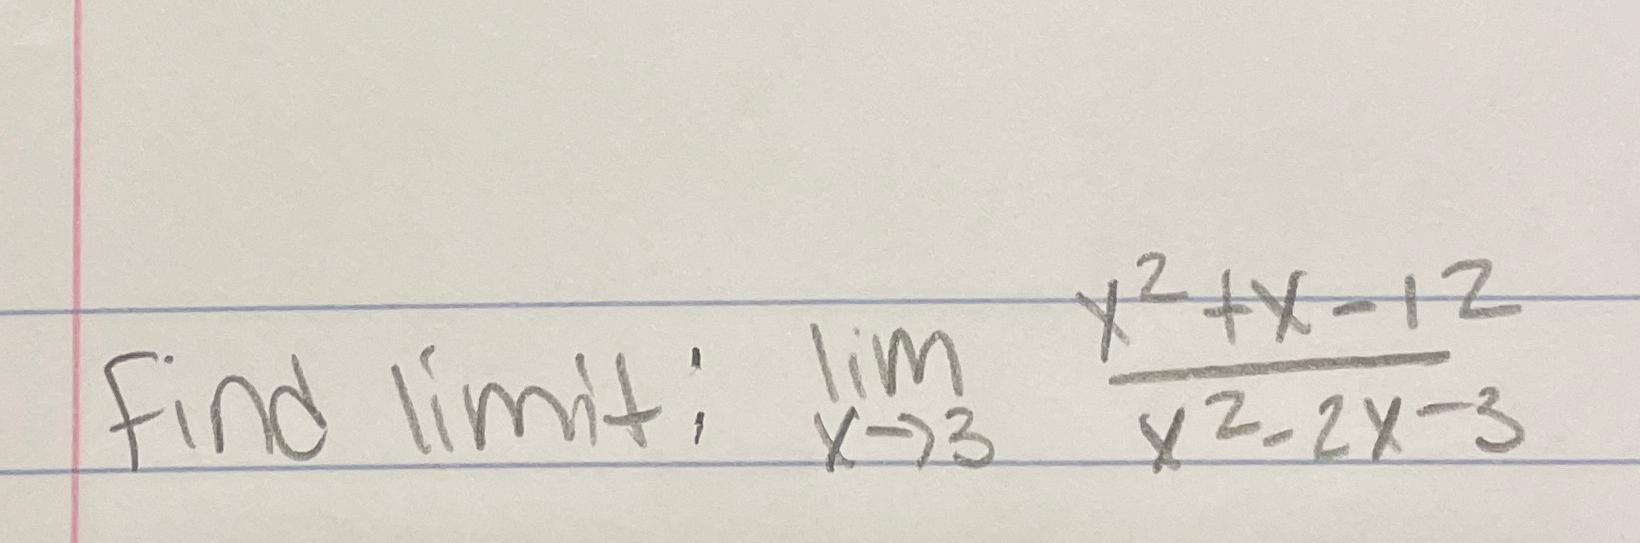 find limit: lim x→3 x²+x-12 / x²-2x-3